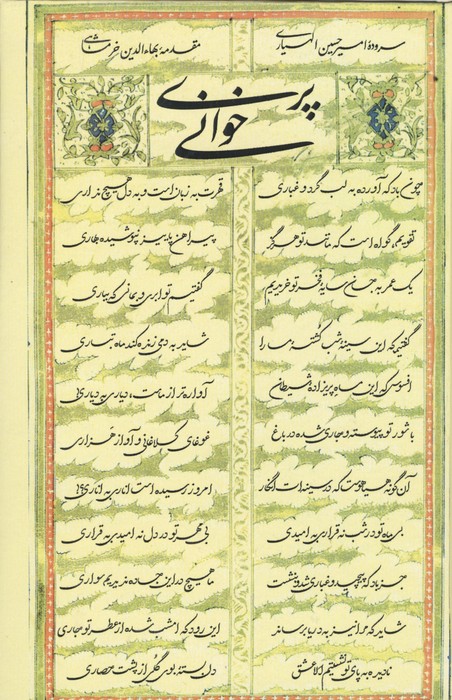 سرودهٔ امیرحسین الهیاری
مقدمهٔ بهاءالدین خرمشاهی
پری خوانی
چون باد که آورده به لب گرد و غباری
قهرت به زبان است و به دل هیچ نداری
تقویم، گواه است که مانند تو هرگز
پیراهن پاییز نپوشیده بهاری
یک عمر به جان سایه فخر تو خریدیم
گفتیم تو ابری و بمانی که بباری
گفتیم که این سینهٔ شب کشتهٔ ما را
شاید به دمی زنده کند ماه تباری
افسوس که این ماه پریزادهٔ شیطان
آواره‌تر از ماست، دیاری به دیاری
با شور تو پیوسته و جاری شده در باغ
غوغای کلاغانی و آواز هزاری
آن گونه هیاهوست که در سینه‌ات انگار
امروز رسیده است اناری به اناری
بی ماه تو در شب نه قراری به امیدی
بی مهر تو در دل نه امیدی به قراری
جز باد که پیچید و غباری شد و ننشست
ما هیچ در این جاده ندیدیم سواری
شاید که مرا نیز به دریا برساند
این رود که امشب شده از عطر تو جاری
نادیده به پای تو نشستیم الا عشق
دل بستهٔ بوی گلی از پشت حصاری